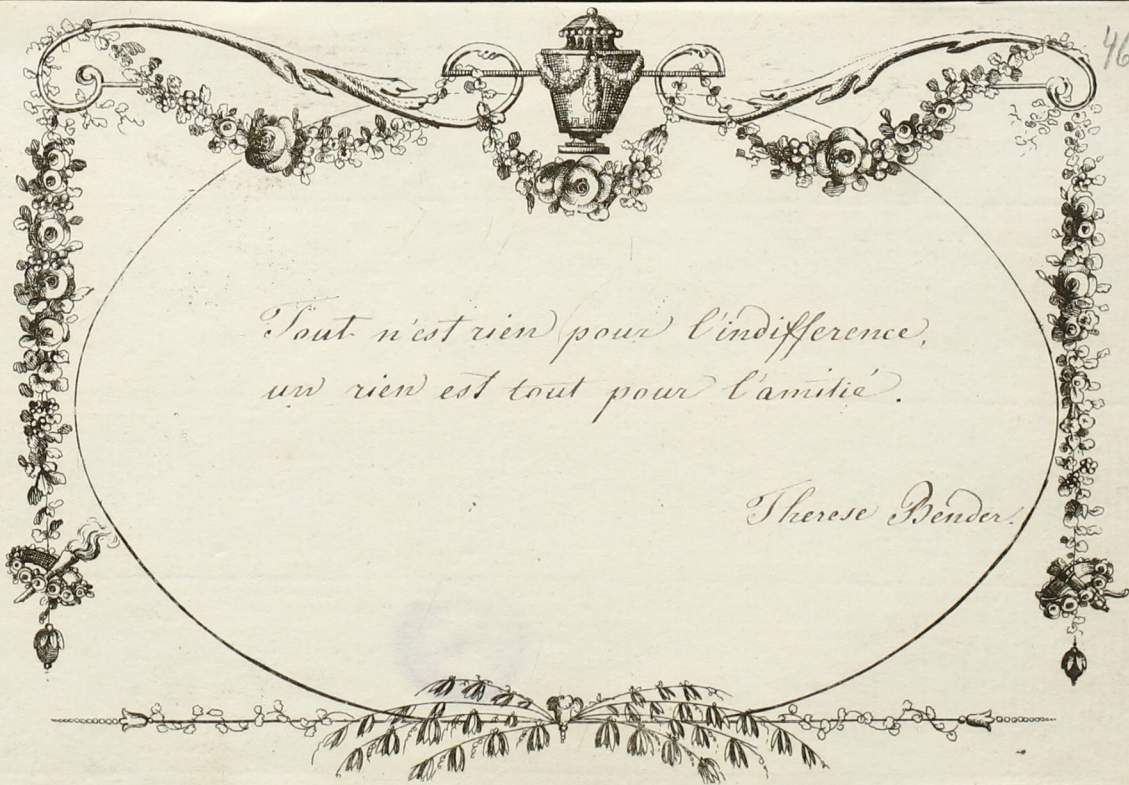 46
Tout n'est rien pour l'indifference,
un rien est tout pour l'amitié.
Therese Bender.